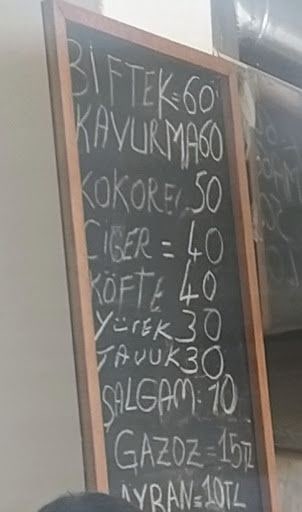 BİFTEK=60
KAVURMA60
KOKOREÇ 50
CİĞER = 40
KÖFTE 40
YÜREK 30
TAVUK 30
ŞALGAM: 10
GAZOZ=15TL
AYRAN=10TL